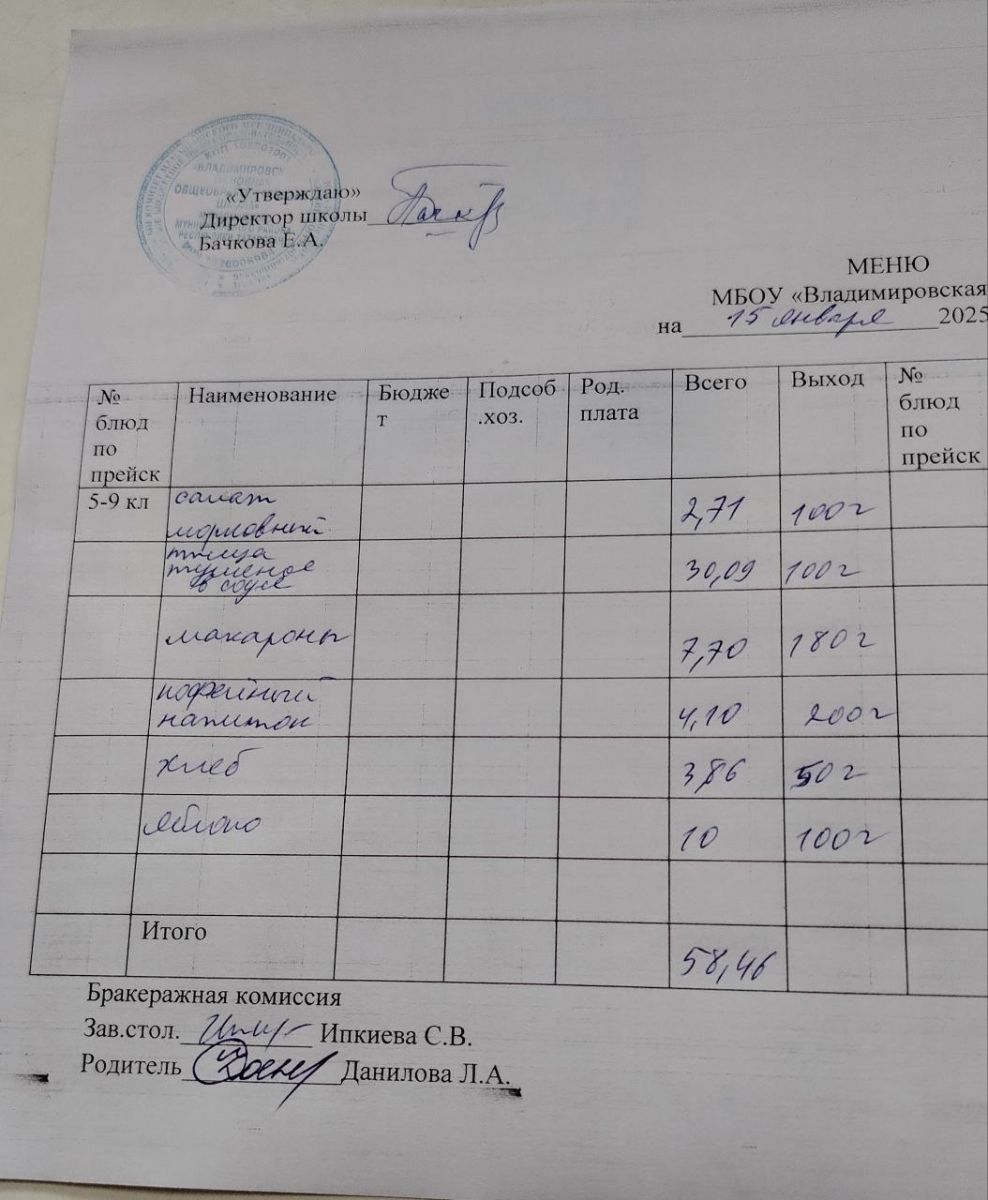 «ВЛАДИМИРОВСК
«Утверждаю»
Директор школы
Бачкова Е.А.
МЕНЮ
МБОУ «Владимировская
на 15 января 2025
№ блюд по прейск Наименование Бюдже т Подсоб .хоз. Род. плата Всего Выход № блюд по прейск
5-9 кл салат морковный 2,71 100г
птица тушеное в соусе 30,09 100г
макароны 7,70 180г
кофейный напиток 4,10 200г
хлеб 3,86 50г
яблоко 10 100г
Итого 58,46
Бракеражная комиссия
Зав.стол. Ипкиева С.В.
Родитель Данилова Л.А.